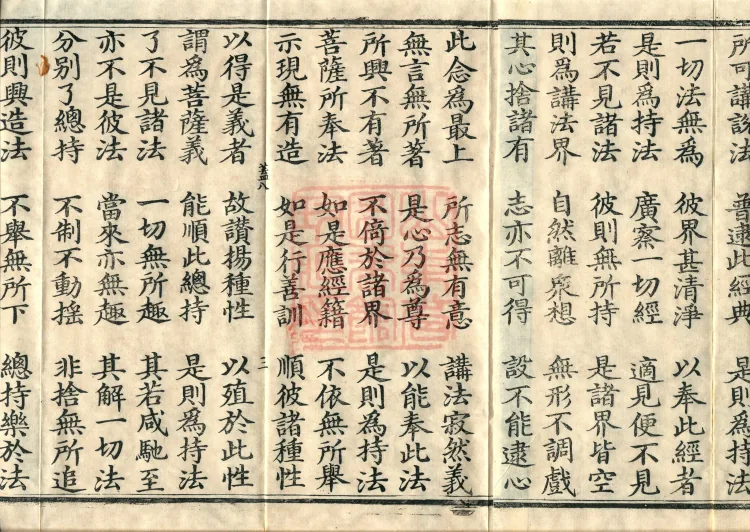 所可講說法 普逮此經典 是則爲持法
一切法無爲 彼界甚清淨 以奉此經者
是則爲持法 廣察一切經 適見便不見
若不見諸法 彼則無所持 是諸界皆空
則爲講法界 自然離衆想 無形不調戲
其心捨諸有 志亦不可得 設不能逮心
此念爲最上 所志無有意 講法寂然義
無言無所著 是心乃爲尊 以能奉此法
所興不有著 不倚於諸界 是則爲持法
菩薩所奉法 如是應經籍 不依無所舉
示現無有造 如是行善訓 順彼諸種性
蓋八 三
以得是義者 故讚揚種性 以殖於此性
謂爲菩薩義 能順此總持 是則爲持法
了不見諸法 一切無所趣 其若咸馳至
亦不是彼法 當來亦無趣 其解一切法
分别了總持 不制不動搖 非捨無所追
彼則興造法 不舉無所下 總持樂於法